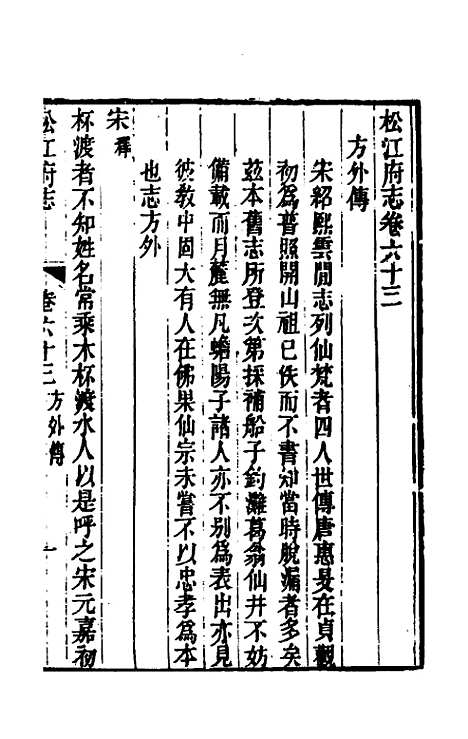 松江府志卷六十三
方外傳
宋紹熙雲間志列仙梵者四人世傳唐惠旻在貞觀
初爲普照開山祖已佚而不書知當時脫漏者多矣
茲本舊志所登次第採補船子釣灘葛翁仙井不妨
備載而月麓無凡蟾陽子諸人亦不別爲表出亦見
彼敎中固大有人在佛果仙宗未嘗不以忠孝爲本
也志方外
宋釋
杯渡者不知姓名常乘木杯渡水人以是呼之宋元嘉初
松江府志 卷六十三 方外傳 一